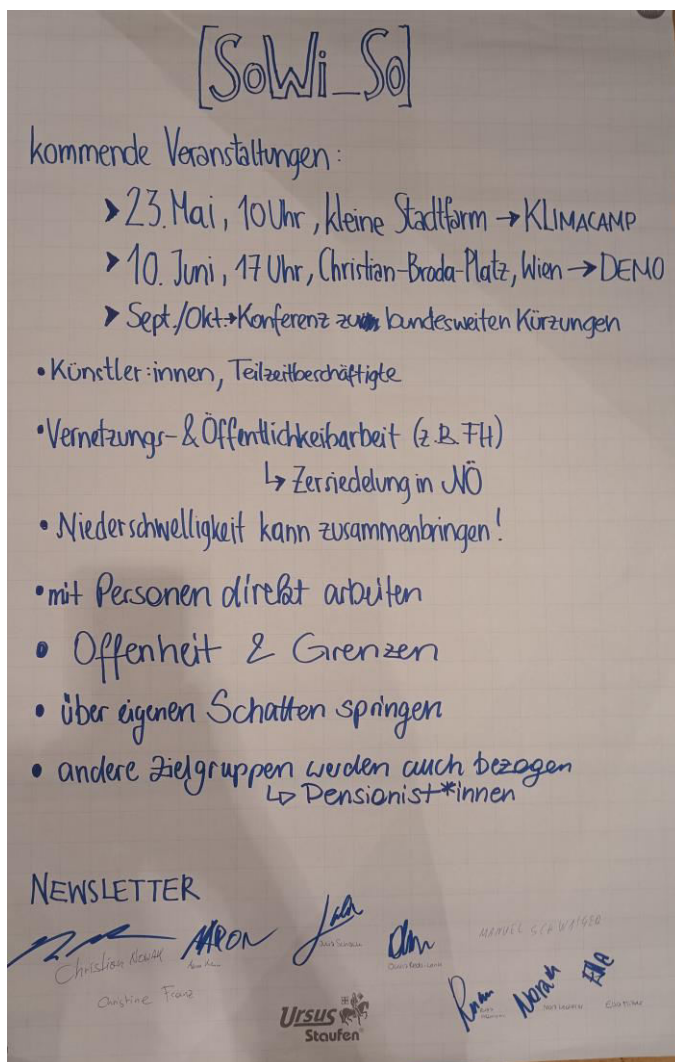 [SoWi_So]
kommende Veranstaltungen:
➤ 23. Mai, 10 Uhr, kleine Stadtfarm → KLIMACAMP
➤ 10. Juni, 17 Uhr, Christian-Broda-Platz, Wien → DEMO
➤ Sept./Okt. → Konferenz zu bundesweiten Kürzungen
• Künstler:innen, Teilzeitbeschäftigte
• Vernetzungs- & Öffentlichkeibarbeit (z.B. FH)
↳ Zersiedelung in NÖ
• Niederschwelligkeit kann zusammenbringen!
• mit Personen direkt arbeiten
• Offenheit & Grenzen
• über eigenen Schatten springen
• andere Zielgruppen werden auch bezogen
↳ Pensionist*innen
NEWSLETTER
AARON
Christian Nowak
Christine Franz
Norah
Ursus
Staufen